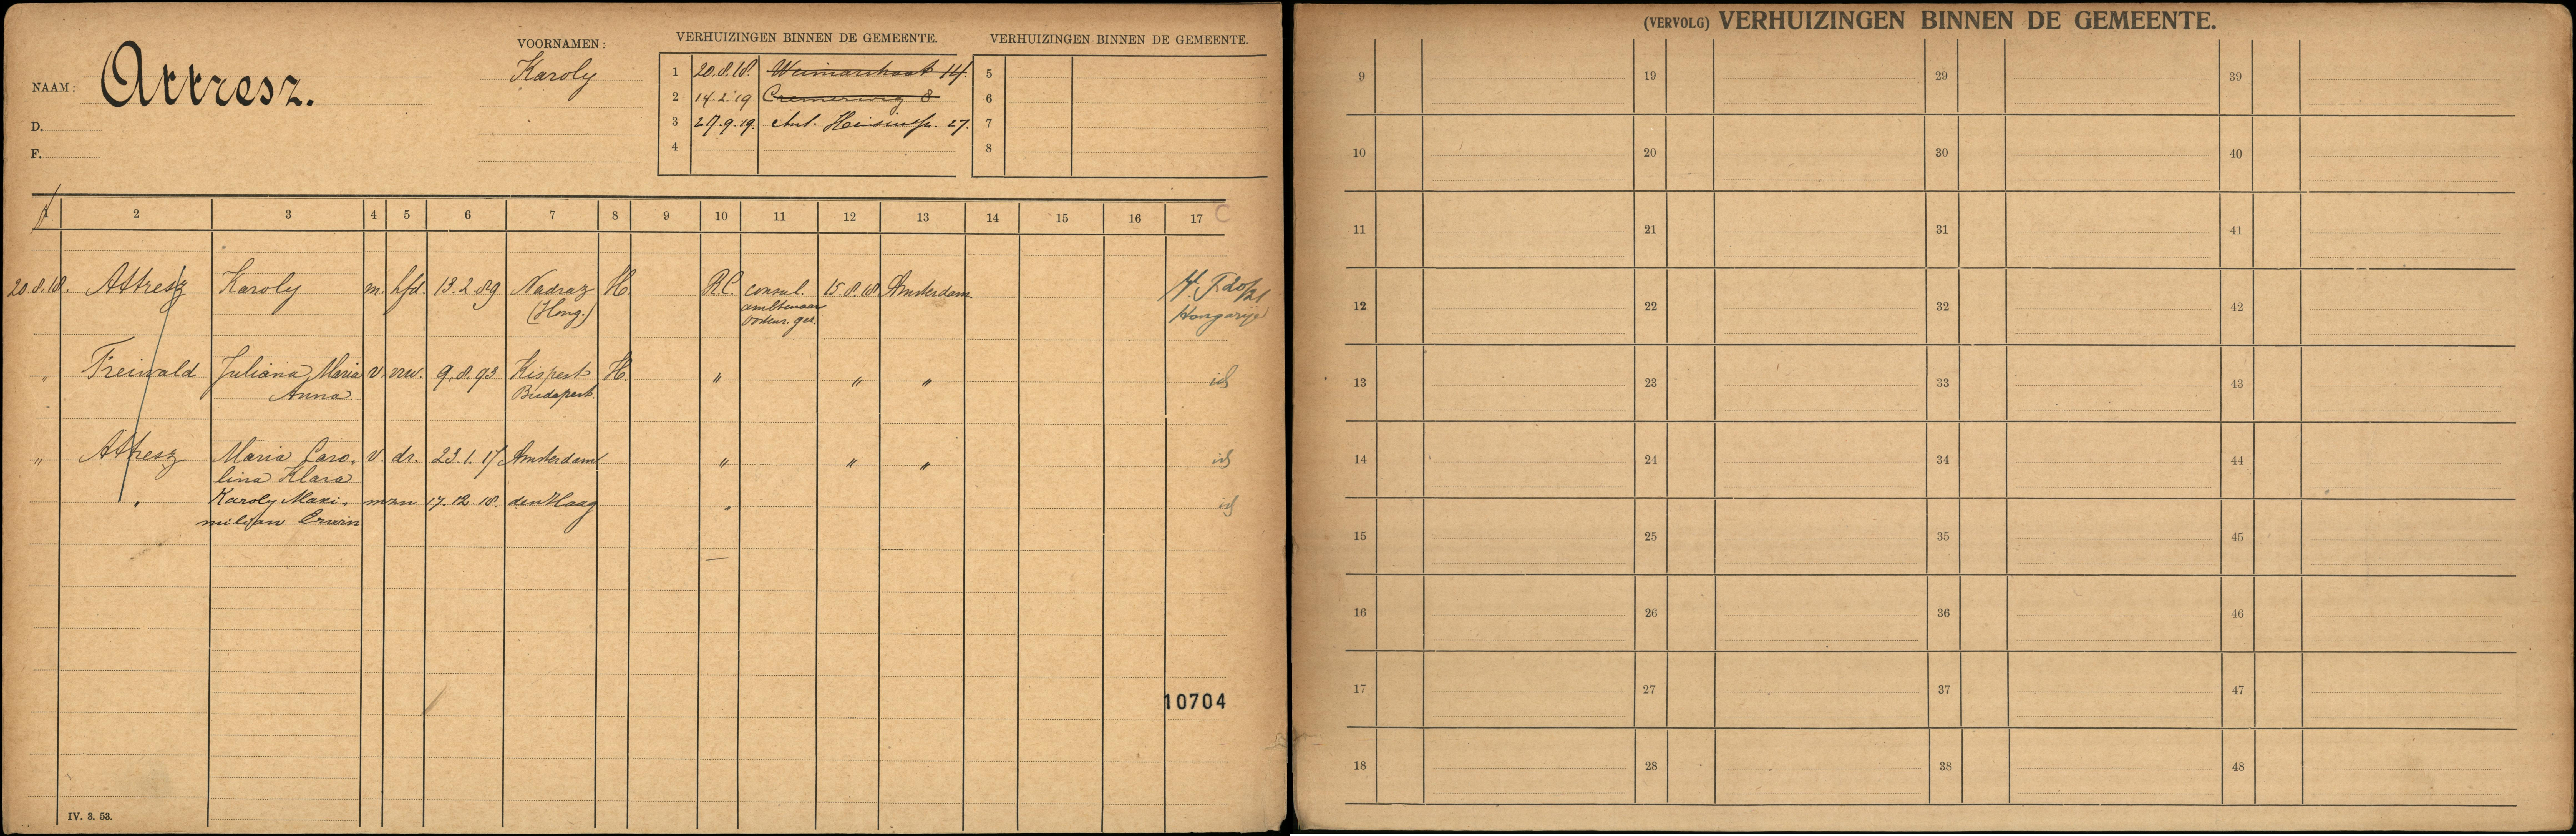 NAAM: Attresz.
D.
F.
VOORNAMEN:
Karoly
VERHUIZINGEN BINNEN DE GEMEENTE.
1 20.8.18. Weimarstraat 14.
2 14.2.19 Cremerweg 8
3 27.9.19. Ant. Heinsiusstr. 27.
4
VERHUIZINGEN BINNEN DE GEMEENTE.
5
6
7
8
1 2 3 4 5 6 7 8 9 10 11 12 13 14 15 16 17 C
20.8.18. Attresz Karoly m. hfd. 13.2.89 Nadraz H. R.C. consul. 15.8.18 Amsterdam.
(Hong.) ambtenaar Hongarije
" Freiwald Juliana Maria v. vrw. 9.8.93 Kispest H. " " " id
Anna Budapest.
" Attresz Maria Caro- v. dr. 23.1.17 Amsterdam " " " id
lina Klara
" Karoly Maxi- m zn 17.12.18. den Haag " id
milian Erwin
10704
IV. 3. 53.
(VERVOLG) VERHUIZINGEN BINNEN DE GEMEENTE.
9 19 29 39
10 20 30 40
11 21 31 41
12 22 32 42
13 23 33 43
14 24 34 44
15 25 35 45
16 26 36 46
17 27 37 47
18 28 38 48